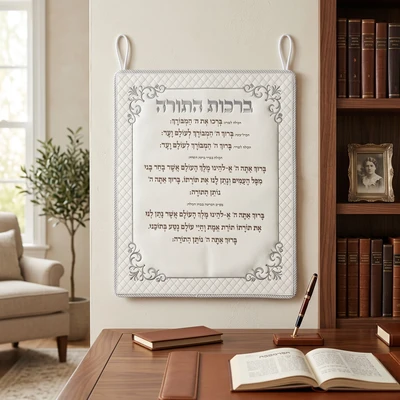 ברכות התורה
בָּרְכוּ אֶת ה' הַמְבוֹרָךְ:
בָּרוּךְ ה' הַמְבוֹרָךְ לְעוֹלָם וָעֶד:
בָּרוּךְ ה' הַמְבוֹרָךְ לְעוֹלָם וָעֶד:
בָּרוּךְ אַתָּה ה' אֱ-לֹהֵינוּ מֶלֶךְ הָעוֹלָם אֲשֶׁר בָּחַר בָּנוּ
מִכָּל הָעַמִּים וְנָתַן לָנוּ אֶת תּוֹרָתוֹ, בָּרוּךְ אַתָּה ה'
נוֹתֵן הַתּוֹרָה:
בָּרוּךְ אַתָּה ה' אֱ-לֹהֵינוּ מֶלֶךְ הָעוֹלָם אֲשֶׁר נָתַן לָנוּ
אֶת תּוֹרָתוֹ תּוֹרַת אֱמֶת וְחַיֵּי עוֹלָם נָטַע בְּתוֹכֵנוּ,
בָּרוּךְ אַתָּה ה' נוֹתֵן הַתּוֹרָה: